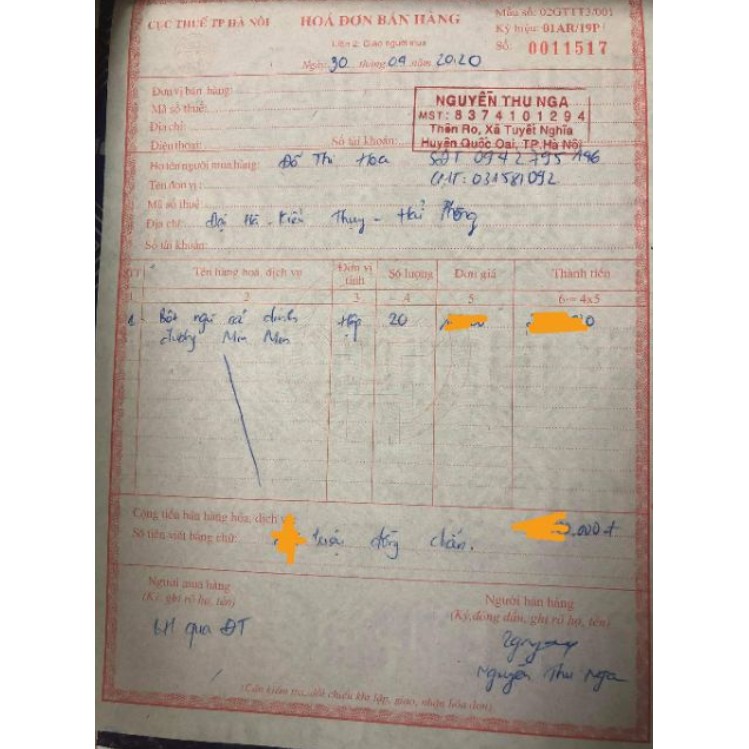 CỤC THUẾ TP HÀ NỘI
HOÁ ĐƠN BÁN HÀNG
Mẫu số: 02GTTT3/001
Liên 2: Giao người mua
Ký hiệu: 01AR/19P
Số: 0011517
Ngày 30 tháng 09 năm 2020
Đơn vị bán hàng:
Mã số thuế:
Địa chỉ:
Điện thoại: Số tài khoản:
NGUYỄN THU NGA
MST: 8374101294
Thôn Ro, Xã Tuyết Nghĩa
Huyện Quốc Oai, TP.Hà Nội
Họ tên người mua hàng: Đỗ Thị Hoa SĐT 0942795186
Tên đơn vị: CMT: 031581092
Mã số thuế:
Địa chỉ: Đại Hà - Kiến Thụy - Hải Phòng
Số tài khoản:
STT Tên hàng hoá, dịch vụ Đơn vị tính Số lượng Đơn giá Thành tiền
1 2 3 4 5 6 = 4x5
1 Bột ngũ cốc dinh Hộp 20
dưỡng Min Min
Cộng tiền bán hàng hóa, dịch vụ 0.000đ
Số tiền viết bằng chữ: triệu đồng chẵn.
Người mua hàng
(Ký, ghi rõ họ, tên)
BH qua ĐT
Người bán hàng
(Ký, đóng dấu, ghi rõ họ, tên)
Nguyễn Thu Nga
(Cần kiểm tra, đối chiếu khi lập, giao, nhận hóa đơn)